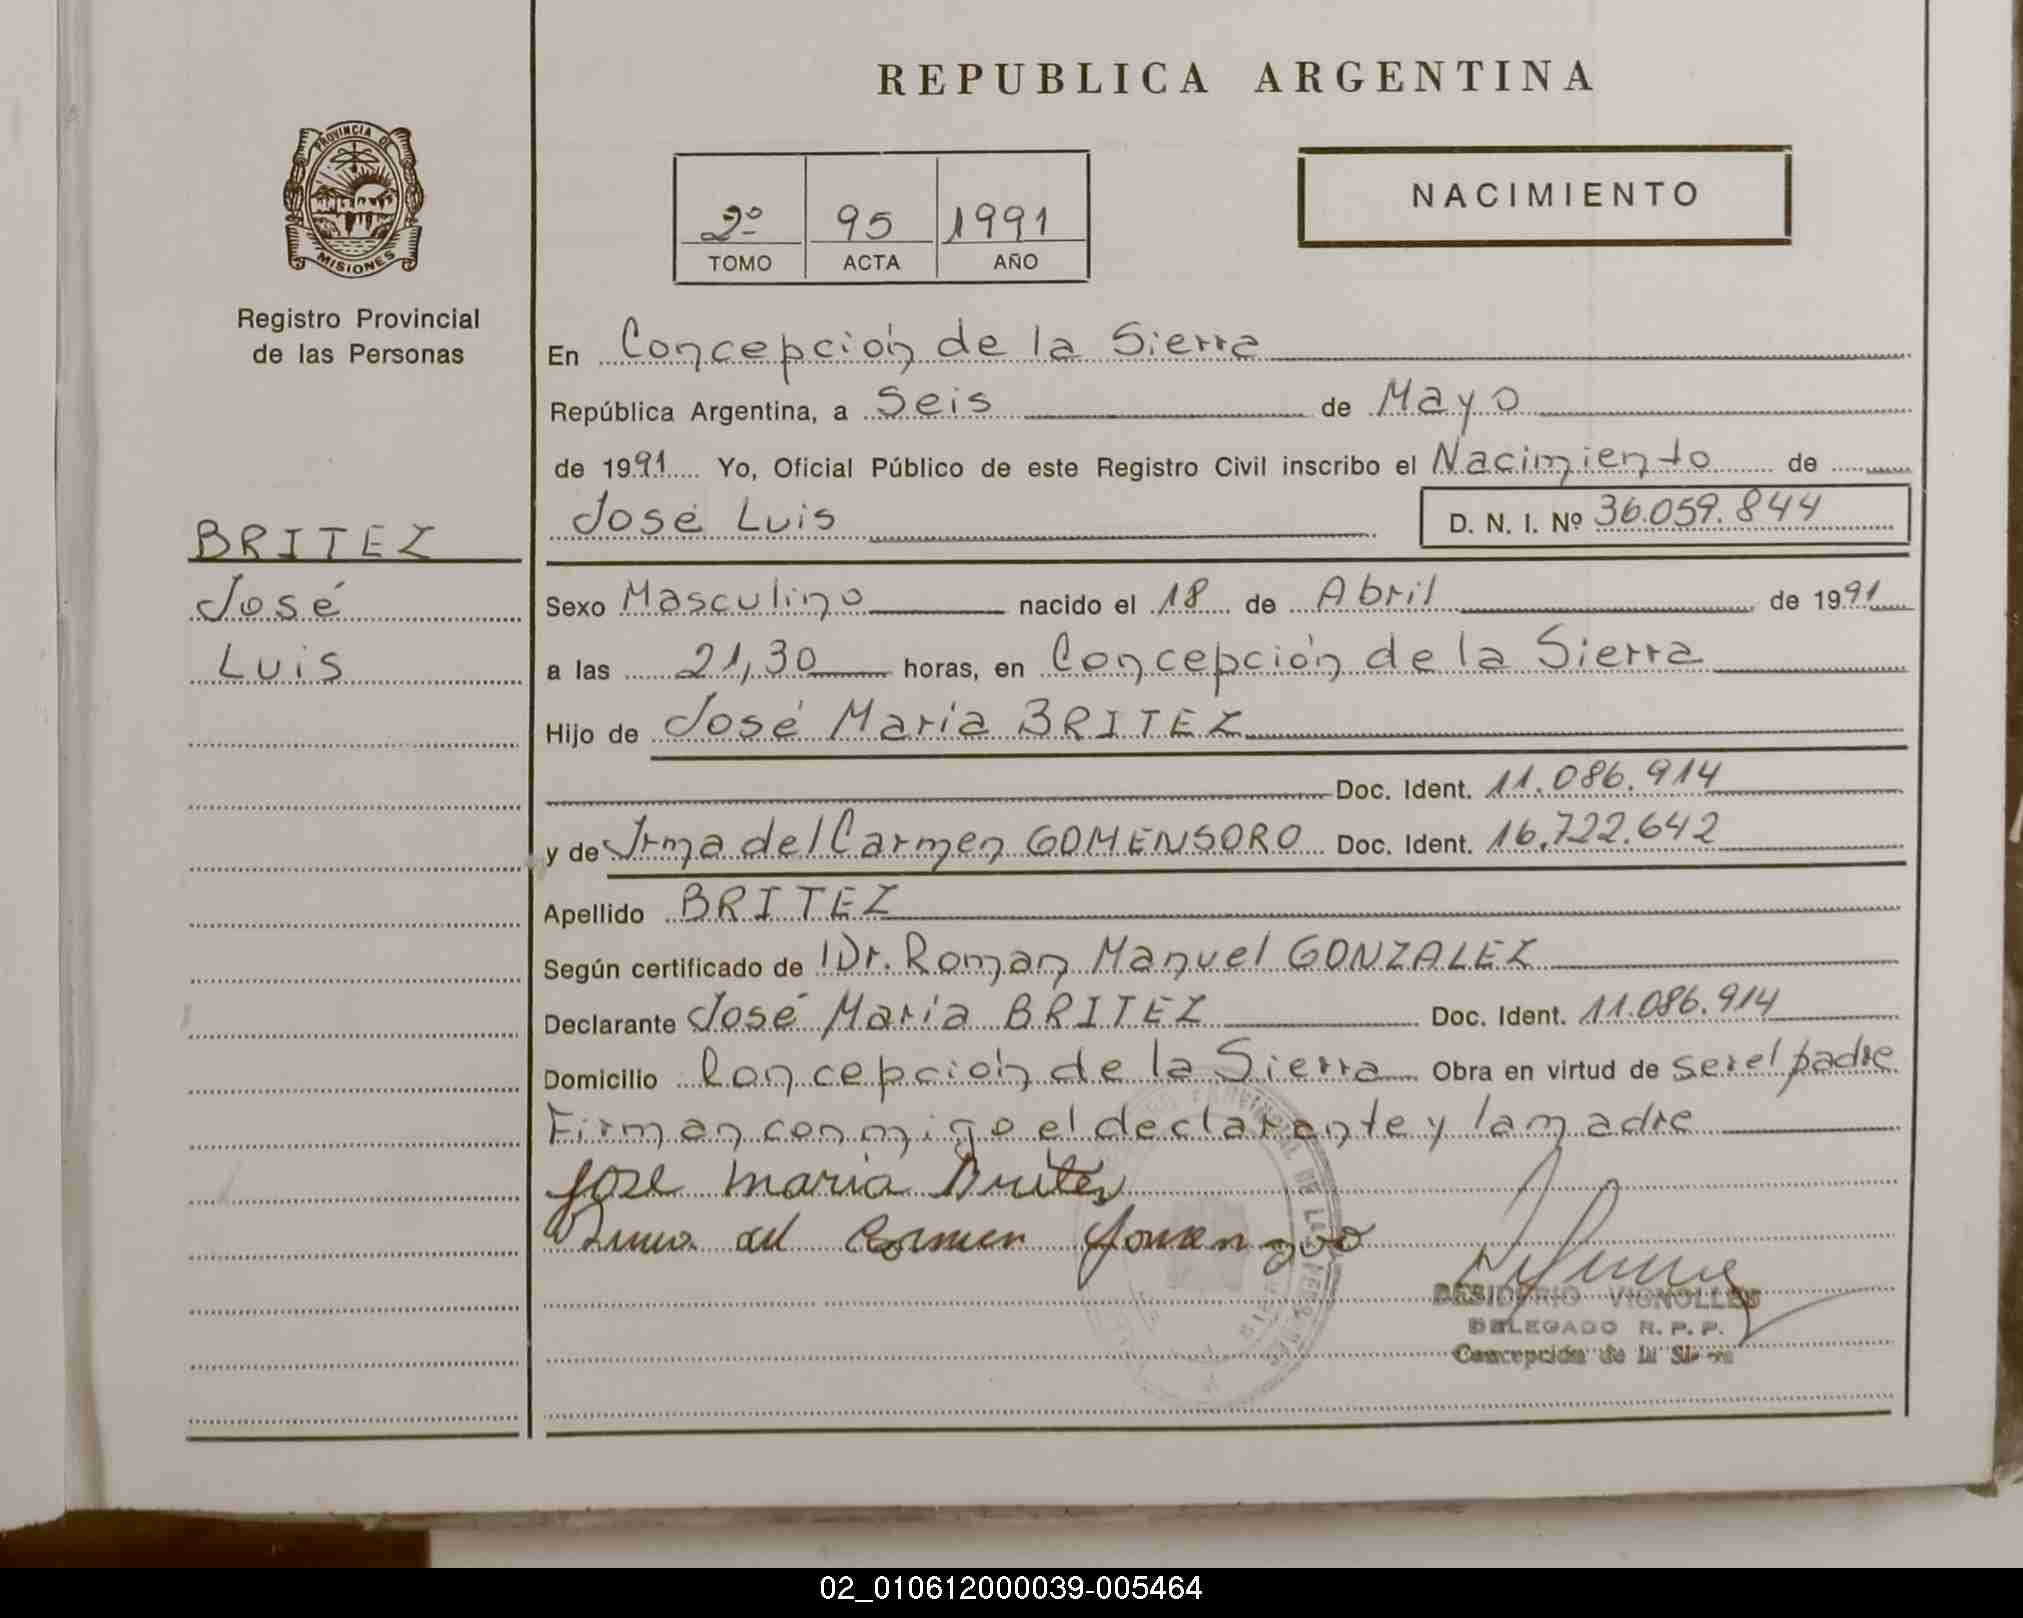 REPUBLICA ARGENTINA
PROVINCIA DE
MISIONES
Registro Provincial
de las Personas
2º 95 1991
TOMO ACTA AÑO
NACIMIENTO
BRITEZ
José
Luis
En Concepción de la Sierra
República Argentina, a Seis de Mayo
de 1991 Yo, Oficial Público de este Registro Civil inscribo el Nacimiento de
José Luis D. N. I. Nº 36.059.844
Sexo Masculino nacido el 18 de Abril de 1991
a las 21,30 horas, en Concepción de la Sierra
Hijo de José María BRITEZ
Doc. Ident. 11.086.914
y de Irma del Carmen GOMENSORO Doc. Ident. 16.722.642
Apellido BRITEZ
Según certificado de Dr. Roman Manuel GONZALEZ
Declarante José María BRITEZ Doc. Ident. 11.086.914
Domicilio Concepción de la Sierra Obra en virtud de ser el padre
Firman conmigo el declarante y la madre
Jose maria Britez
Irma del Carmen
DESIDERIO VIGNOLLES
DELEGADO R. P. P.
Concepción de la Sierra
02_010612000039-005464